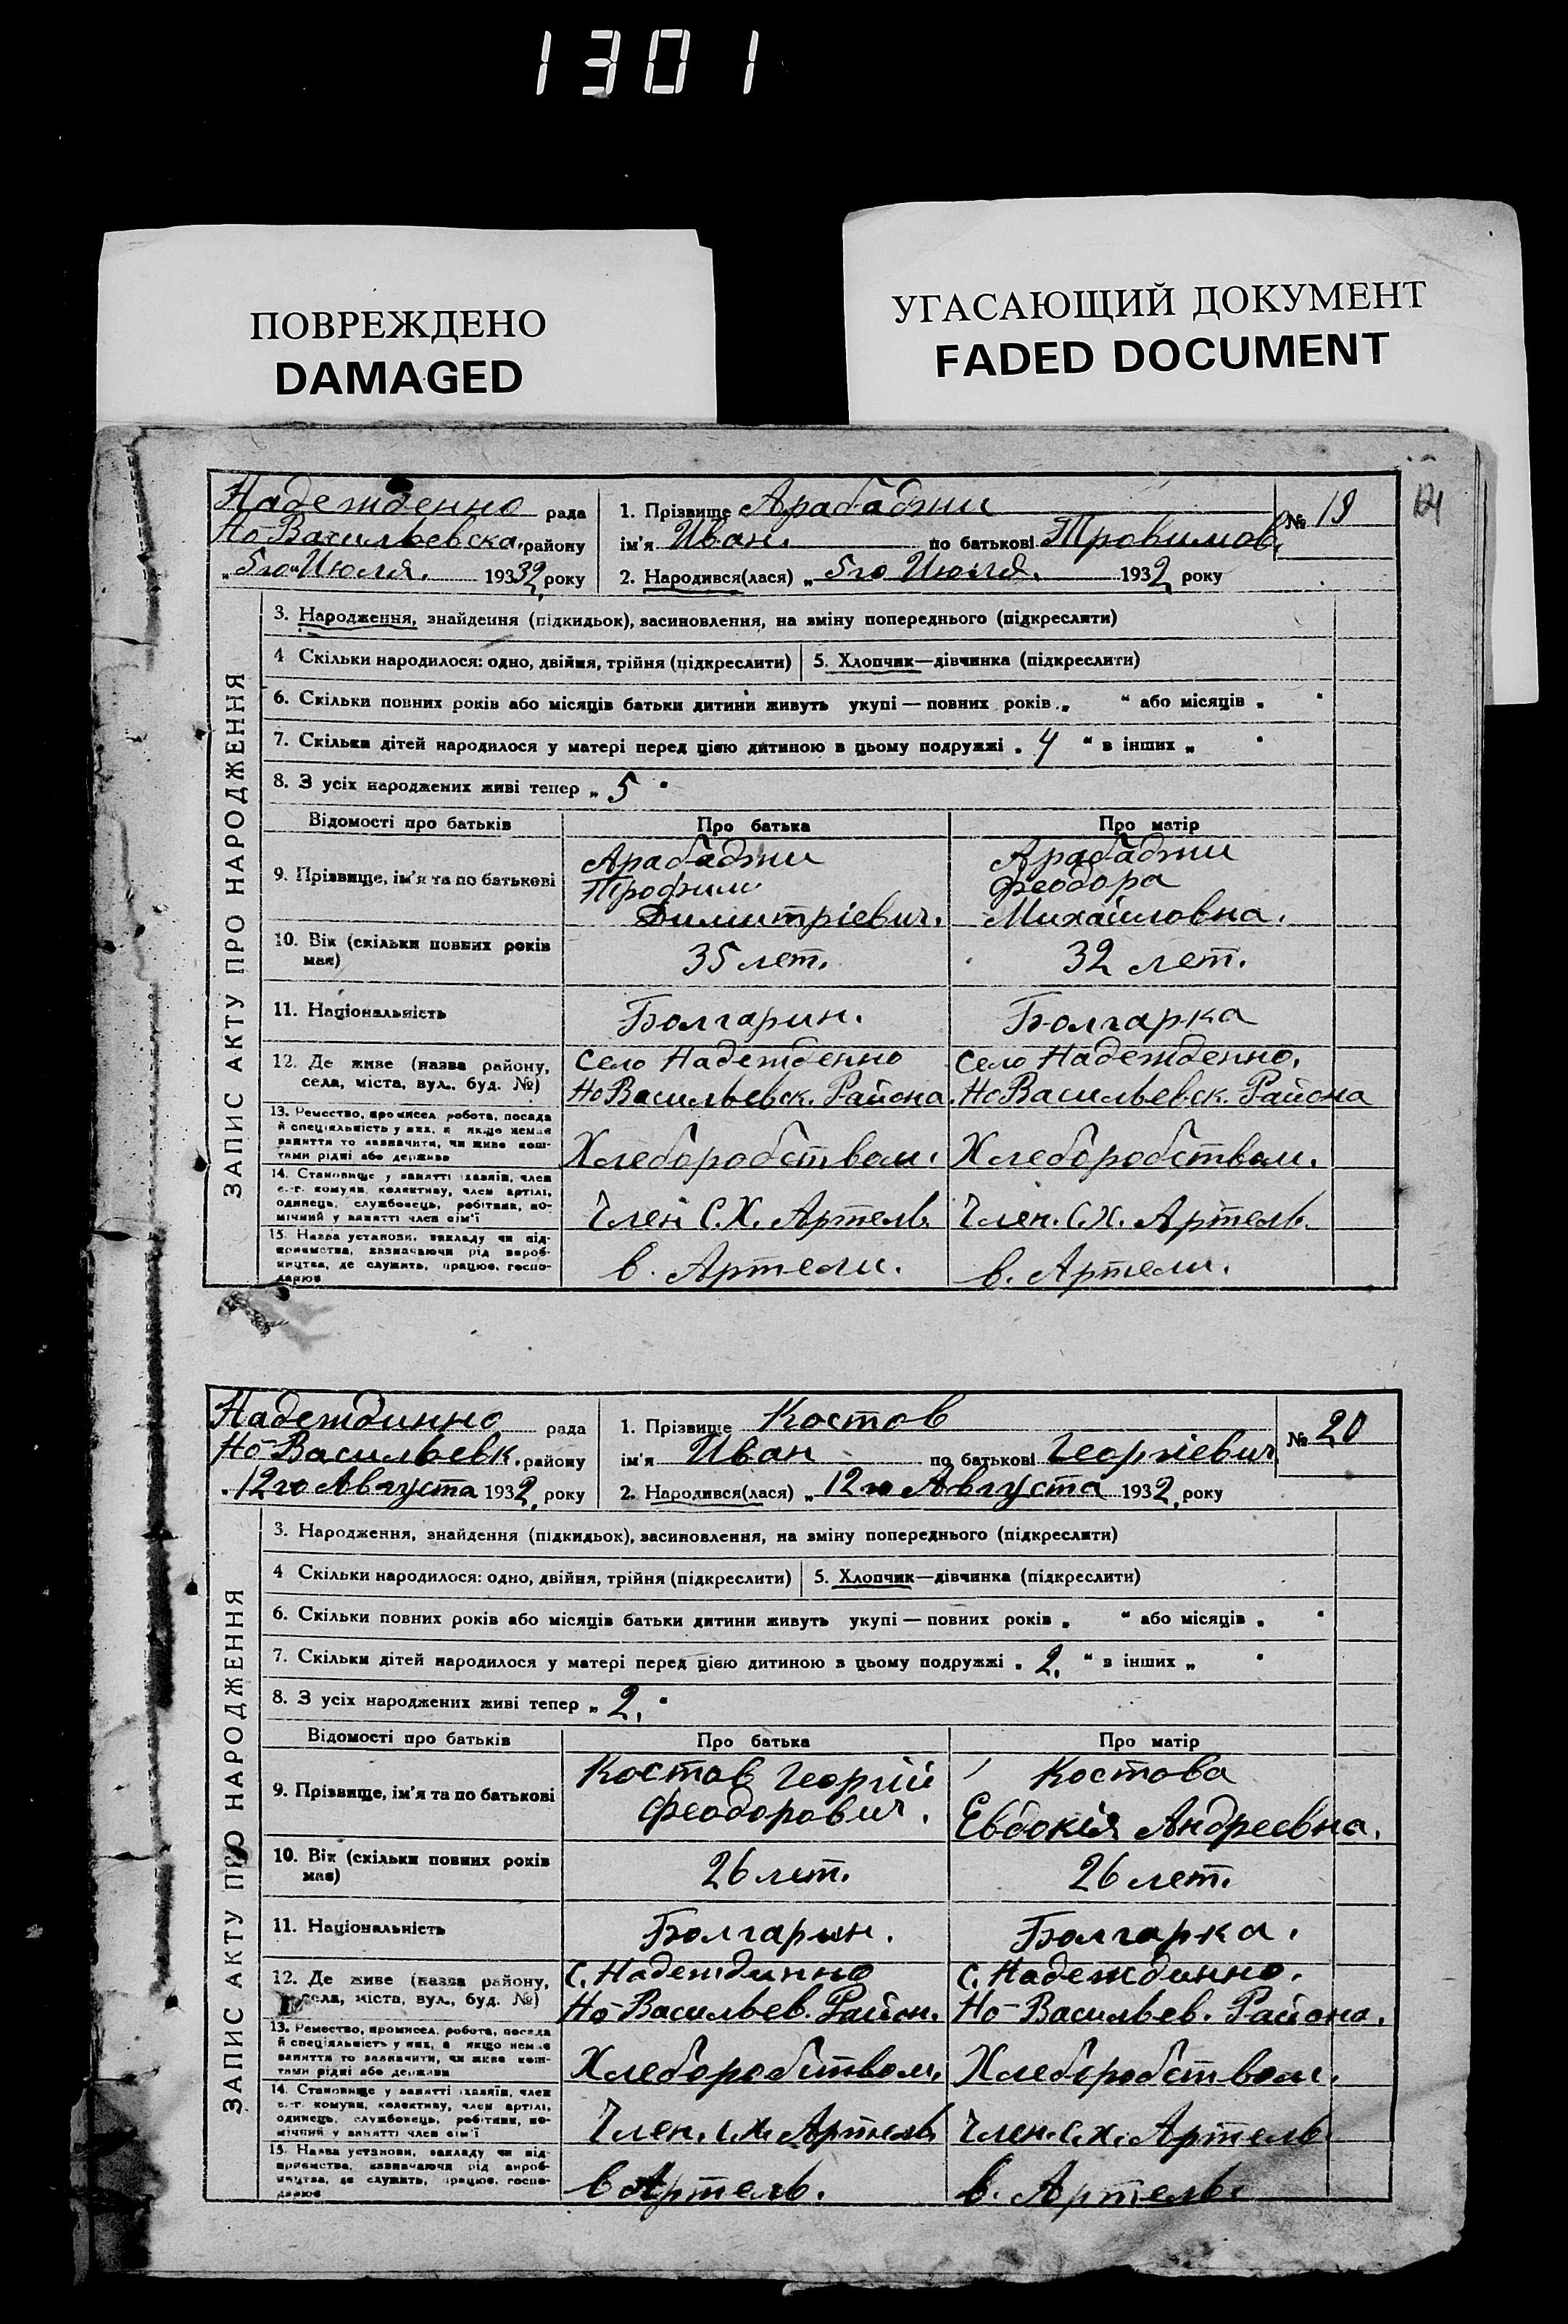 1301
ПОВРЕЖДЕНО
DAMAGED
УГАСАЮЩИЙ ДОКУМЕНТ
FADED DOCUMENT
ЗАПИС АКТУ ПРО НАРОДЖЕННЯ
Надежденно рада
Но-Васильевска. району
„5го" Июля. 1932 року
1. Прізвище Арабаджи
ім'я Иван. по батькові Трофимов.
2. Народився(лася) „5го Июля. 1932 року
№ 19
3. Народження, знайдення (підкидьок), засиновлення, на зміну попереднього (підкреслити)
4 Скільки народилося: одно, двійня, трійня (підкреслити) 5. Хлопчик—дівчинка (підкреслити)
6. Скільки повних років або місяців батьки дитини живуть укупі — повних років „ “ або місяців „ "
7. Скільки дітей народилося у матері перед цією дитиною в цьому подружжі „ 4 “ в інших „ "
8. З усіх народжених живі тепер „ 5 "
Відомості про батьків Про батька Про матір
9. Прізвище, ім'я та по батькові
Арабаджи
Трофим
Димитріевич.
Арабаджи
Феодора
Михайловна.
10. Вік (скільки повних років
має)
35 лет.
32 лет.
11. Національність Болгарин. Болгарка
12. Де живе (назва району,
села, міста, вул., буд. №)
Село Надежденно
Но Васильевск. Района.
Село Надежденно.
Но Васильевск. Района
13. Ремество, промисел, робота, посада
й спеціяльність у них, а якщо немає
заняття то зазначити, чи живе кош-
тами рідні або держави
Хлеборобством.
Хлеборобством.
14. Становище у занятті хазяїн, член
с.-г. комуни, колективу, член артілі,
одинець, службовець, робітник, по-
мічний у занятті член сім'ї
Член С.Х. Артель.
Член. С.Х. Артель.
15. Назва установи, закладу чи під-
приємства, зазначаючи рід вироб-
ництва, де служить, працює, госпо-
дарює
в. Артели.
в. Артели.
ЗАПИС АКТУ ПРО НАРОДЖЕННЯ
Надеждинно рада
Но-Васильевк. району
„12го Августа 1932. року
1. Прізвище Костов
ім'я Иван по батькові Георгіевич
2. Народився(лася) „12го Августа 1932. року
№ 20
3. Народження, знайдення (підкидьок), засиновлення, на зміну попереднього (підкреслити)
4 Скільки народилося: одно, двійня, трійня (підкреслити) 5. Хлопчик—дівчинка (підкреслити)
6. Скільки повних років або місяців батьки дитини живуть укупі — повних років „ “ або місяців „ "
7. Скільки дітей народилося у матері перед цією дитиною в цьому подружжі „ 2. “ в інших „ "
8. З усіх народжених живі тепер „ 2. "
Відомості про батьків Про батька Про матір
9. Прізвище, ім'я та по батькові
Костов Георгій
Феодорович.
Костова
Евдокія Андреевна.
10. Вік (скільки повних років
має)
26 лет.
26 лет.
11. Національність Болгарин. Болгарка.
12. Де живе (назва району,
села, міста, вул., буд. №)
С. Надеждинно
Но-Васильев. Район.
С. Надеждинно.
Но-Васильев. Района.
13. Ремество, промисел, робота, посада
й спеціяльність у них, а якщо немає
заняття то зазначити, чи живе кош-
тами рідні або держави
Хлеборобством.
Хлеборобством.
14. Становище у занятті хазяїн, член
с.-г. комуни, колективу, член артілі,
одинець, службовець, робітник, по-
мічний у занятті член сім'ї
Член. С.Х. Артель
Член. С.Х. Артель
15. Назва установи, закладу чи під-
приємства, зазначаючи рід вироб-
ництва, де служить, працює, госпо-
дарює
в Артель.
в. Артель.